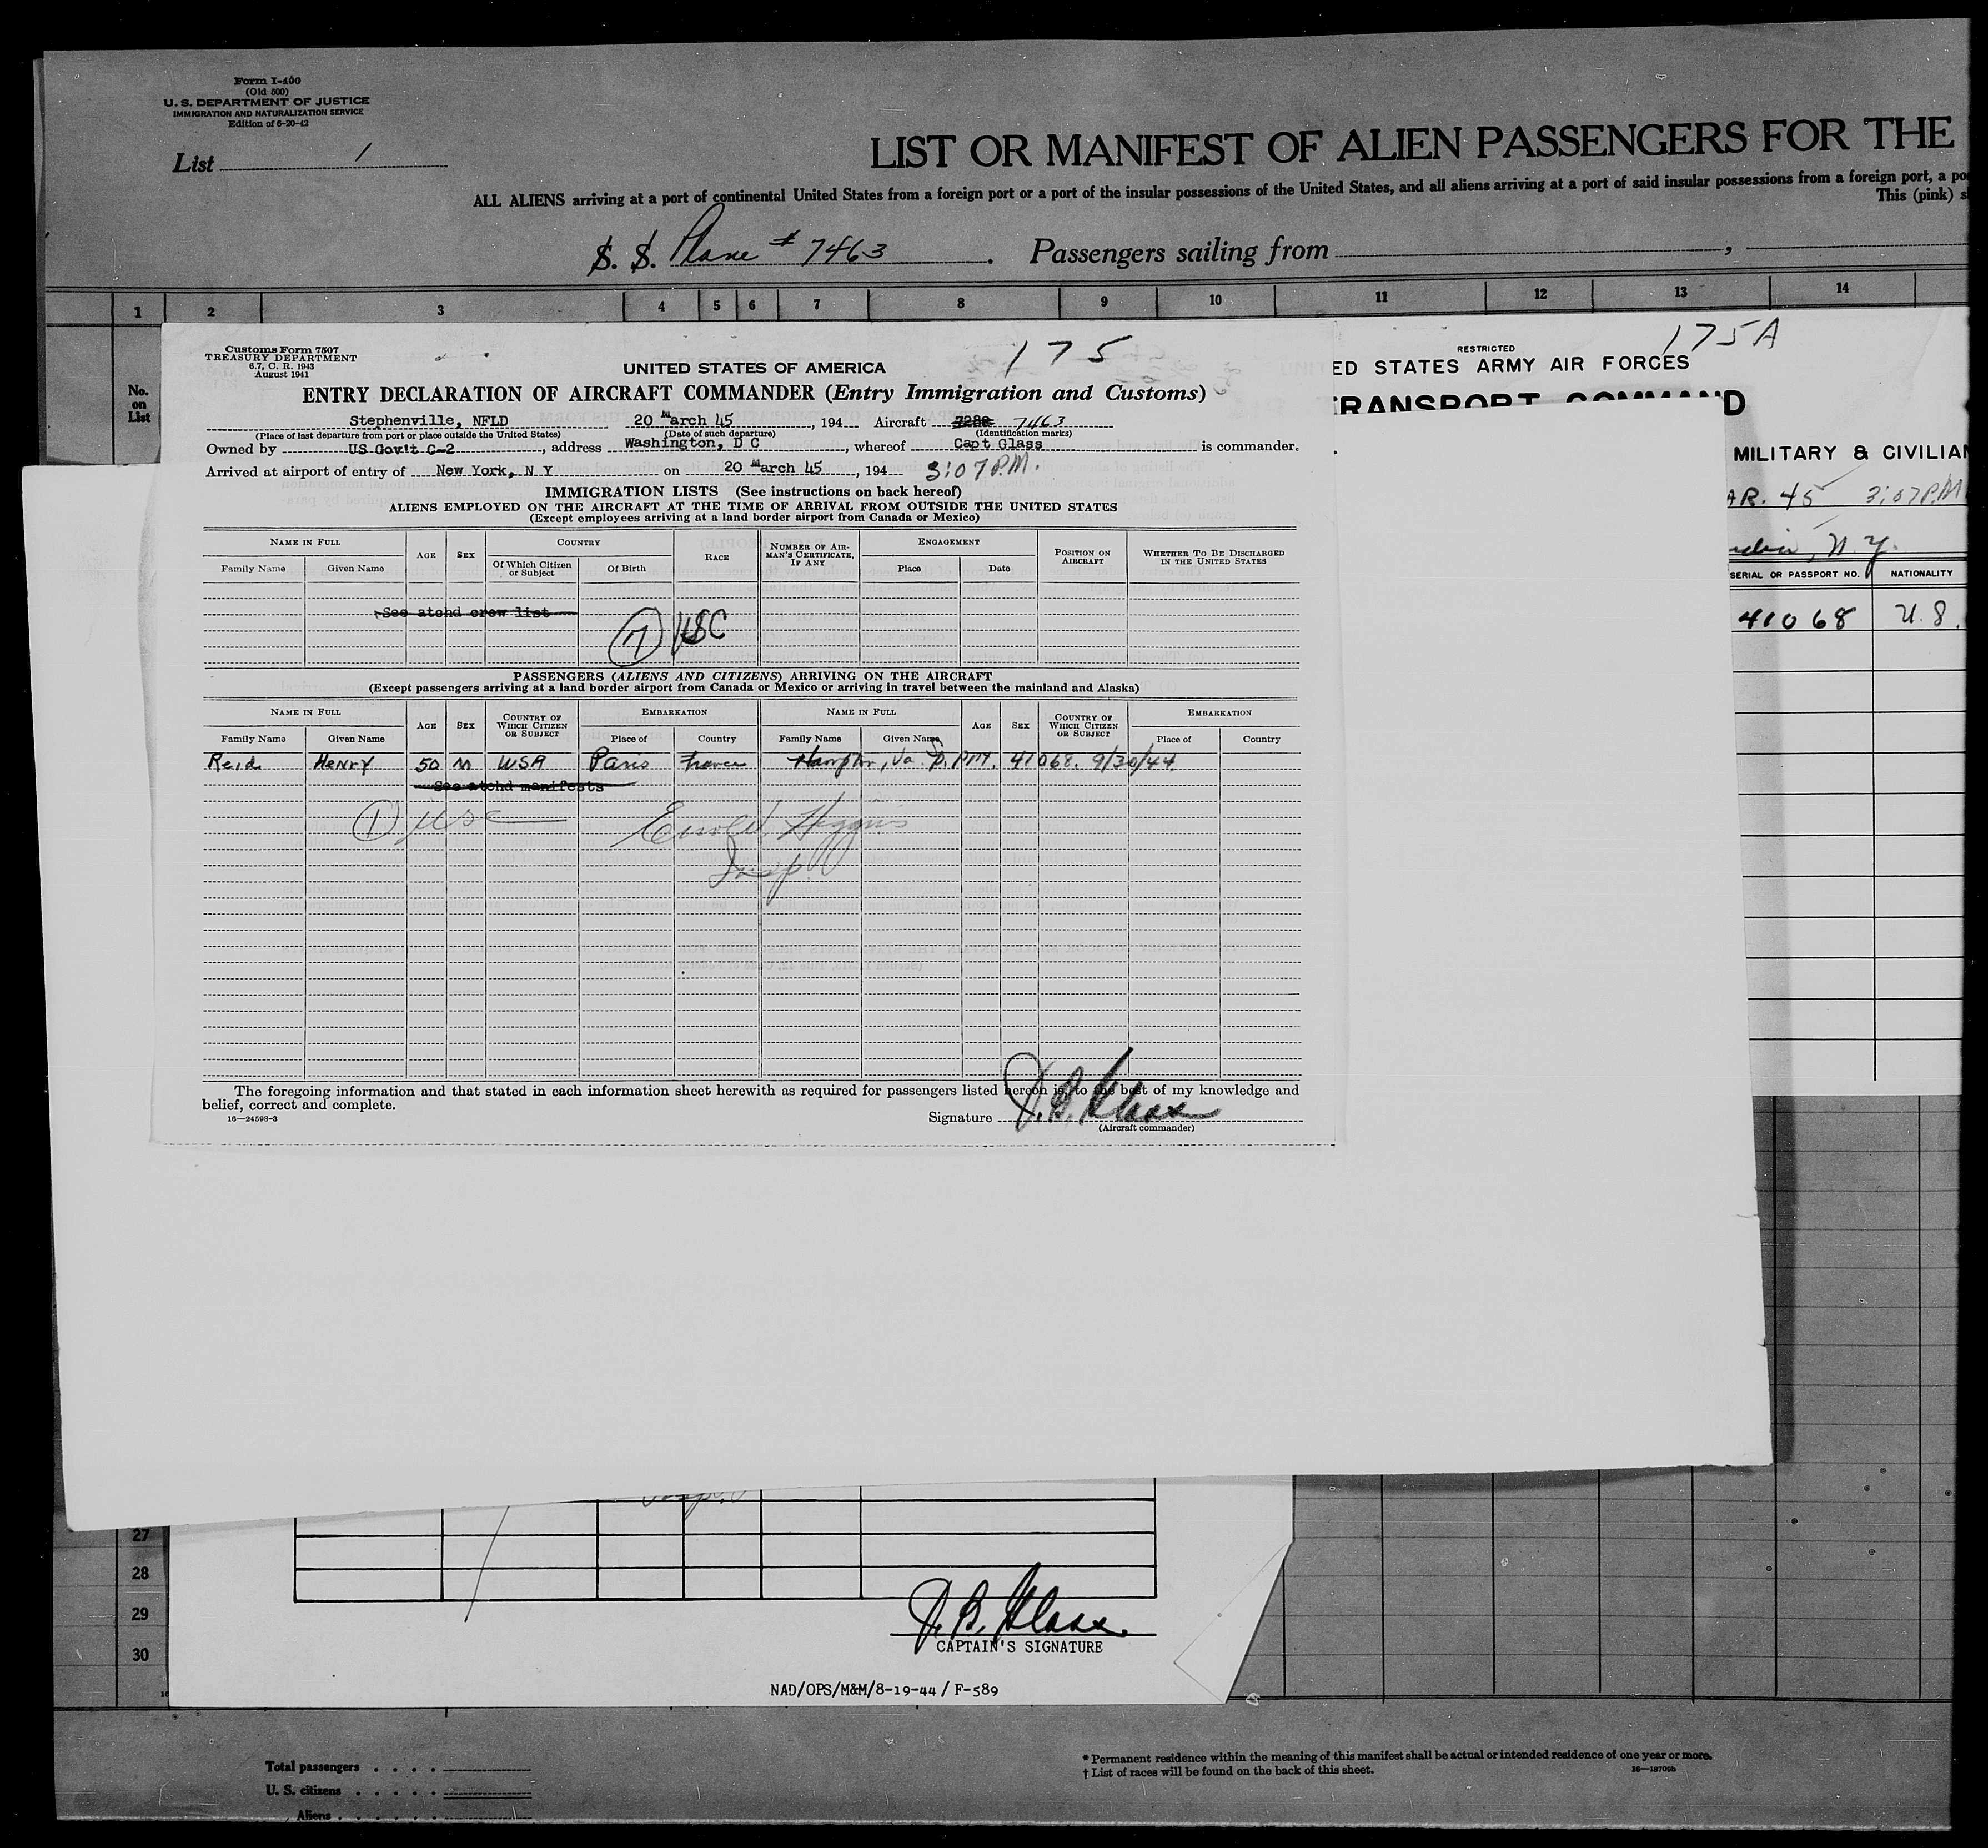 Form I-400
(Old 500)
U. S. DEPARTMENT OF JUSTICE
IMMIGRATION AND NATURALIZATION SERVICE
Edition of 6-20-42
List 1
LIST OR MANIFEST OF ALIEN PASSENGERS FOR THE
ALL ALIENS arriving at a port of continental United States from a foreign port or a port of the insular possessions of the United States, and all aliens arriving at a port of said insular possessions from a foreign port, a po
This (pink) s
S. S. Plane # 7463 . Passengers sailing from ,
1 2 3 4 5 6 7 8 9 10 11 12 13 14
No. on List
Customs Form 7507
TREASURY DEPARTMENT
6.7, C. R. 1943
August 1941
175
UNITED STATES OF AMERICA
ENTRY DECLARATION OF AIRCRAFT COMMANDER (Entry Immigration and Customs)
Stephenville, NFLD 20 March 45, 194 Aircraft 7282 7463
(Place of last departure from port or place outside the United States) (Date of such departure) (Identification marks)
Owned by US Gov't C-2, address Washington, D C, whereof Capt Glass is commander.
Arrived at airport of entry of New York, N Y on 20 March 45, 194 3:07 P.M.
IMMIGRATION LISTS (See instructions on back hereof)
ALIENS EMPLOYED ON THE AIRCRAFT AT THE TIME OF ARRIVAL FROM OUTSIDE THE UNITED STATES
(Except employees arriving at a land border airport from Canada or Mexico)
NAME IN FULL AGE SEX COUNTRY RACE NUMBER OF AIRMAN'S CERTIFICATE, IF ANY ENGAGEMENT POSITION ON AIRCRAFT WHETHER TO BE DISCHARGED IN THE UNITED STATES
Family Name Given Name Of Which Citizen or Subject Of Birth Place Date
See atchd crew list
7 USC
PASSENGERS (ALIENS AND CITIZENS) ARRIVING ON THE AIRCRAFT
(Except passengers arriving at a land border airport from Canada or Mexico or arriving in travel between the mainland and Alaska)
NAME IN FULL AGE SEX COUNTRY OF WHICH CITIZEN OR SUBJECT EMBARKATION NAME IN FULL AGE SEX COUNTRY OF WHICH CITIZEN OR SUBJECT EMBARKATION
Family Name Given Name Place of Country Family Name Given Name Place of Country
Reid Henry 50 M USA Paris France Hampton, Va. 41068. 9/30/44
See atchd manifests
1 usc
Higgins
Insp.
The foregoing information and that stated in each information sheet herewith as required for passengers listed hereon is, to the best of my knowledge and
belief, correct and complete.
16—24598-3
Signature J. B. Glass
(Aircraft commander)
RESTRICTED
175A
ED STATES ARMY AIR FORCES
TRANSPORT COMMAND
MILITARY & CIVILIAN
AR. 45 3:07 P.M
N.Y.
SERIAL OR PASSPORT NO. NATIONALITY
41068 U.S.
27
28
29
30
J. B. Glass
CAPTAIN'S SIGNATURE
NAD/OPS/M&M/8-19-44 / F-589
Total passengers
U. S. citizens
Aliens
* Permanent residence within the meaning of this manifest shall be actual or intended residence of one year or more.
† List of races will be found on the back of this sheet.
16—18709b